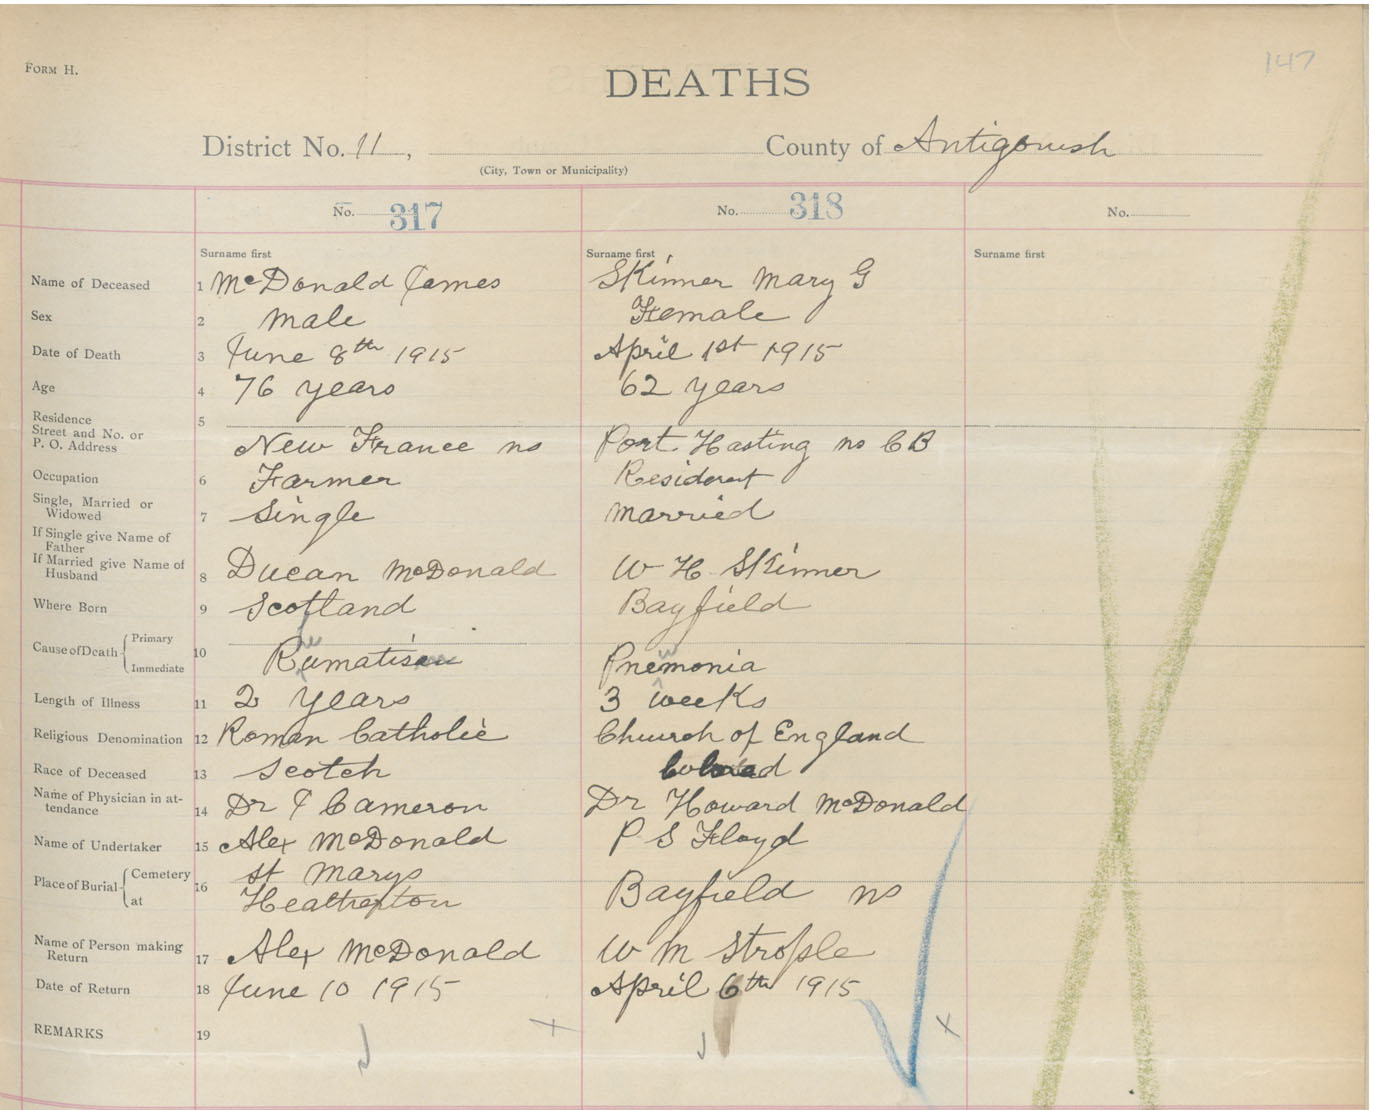 FORM H.
147
DEATHS
District No. 11, County of Antigonish
(City, Town or Municipality)
No. 317 No. 318 No.
Surname first Surname first Surname first
Name of Deceased 1 McDonald James Skinner Mary G
Sex 2 male Female
Date of Death 3 June 8th 1915 April 1st 1915
Age 4 76 years 62 years
Residence 5
Street and No. or
P. O. Address New France ns Port Hasting ns CB
Occupation 6 Farmer Resident
Single, Married or
Widowed 7 Single married
If Single give Name of
Father
If Married give Name of
Husband 8 Ducan McDonald W H Skinner
Where Born 9 Scotland Bayfield
Cause of Death Primary
Immediate 10 Rumatism Pnewmonia
Length of Illness 11 2 years 3 weeks
Religious Denomination 12 Roman Catholic Church of England
Race of Deceased 13 Scotch Colored
Name of Physician in at-
tendance 14 Dr J Cameron Dr Howard McDonald
Name of Undertaker 15 Alex McDonald P S Floyd
Place of Burial Cemetery 16 st Marys
at Heatherton Bayfield ns
Name of Person making
Return 17 Alex McDonald W M Strople
Date of Return 18 June 10 1915 April 6th 1915
REMARKS 19